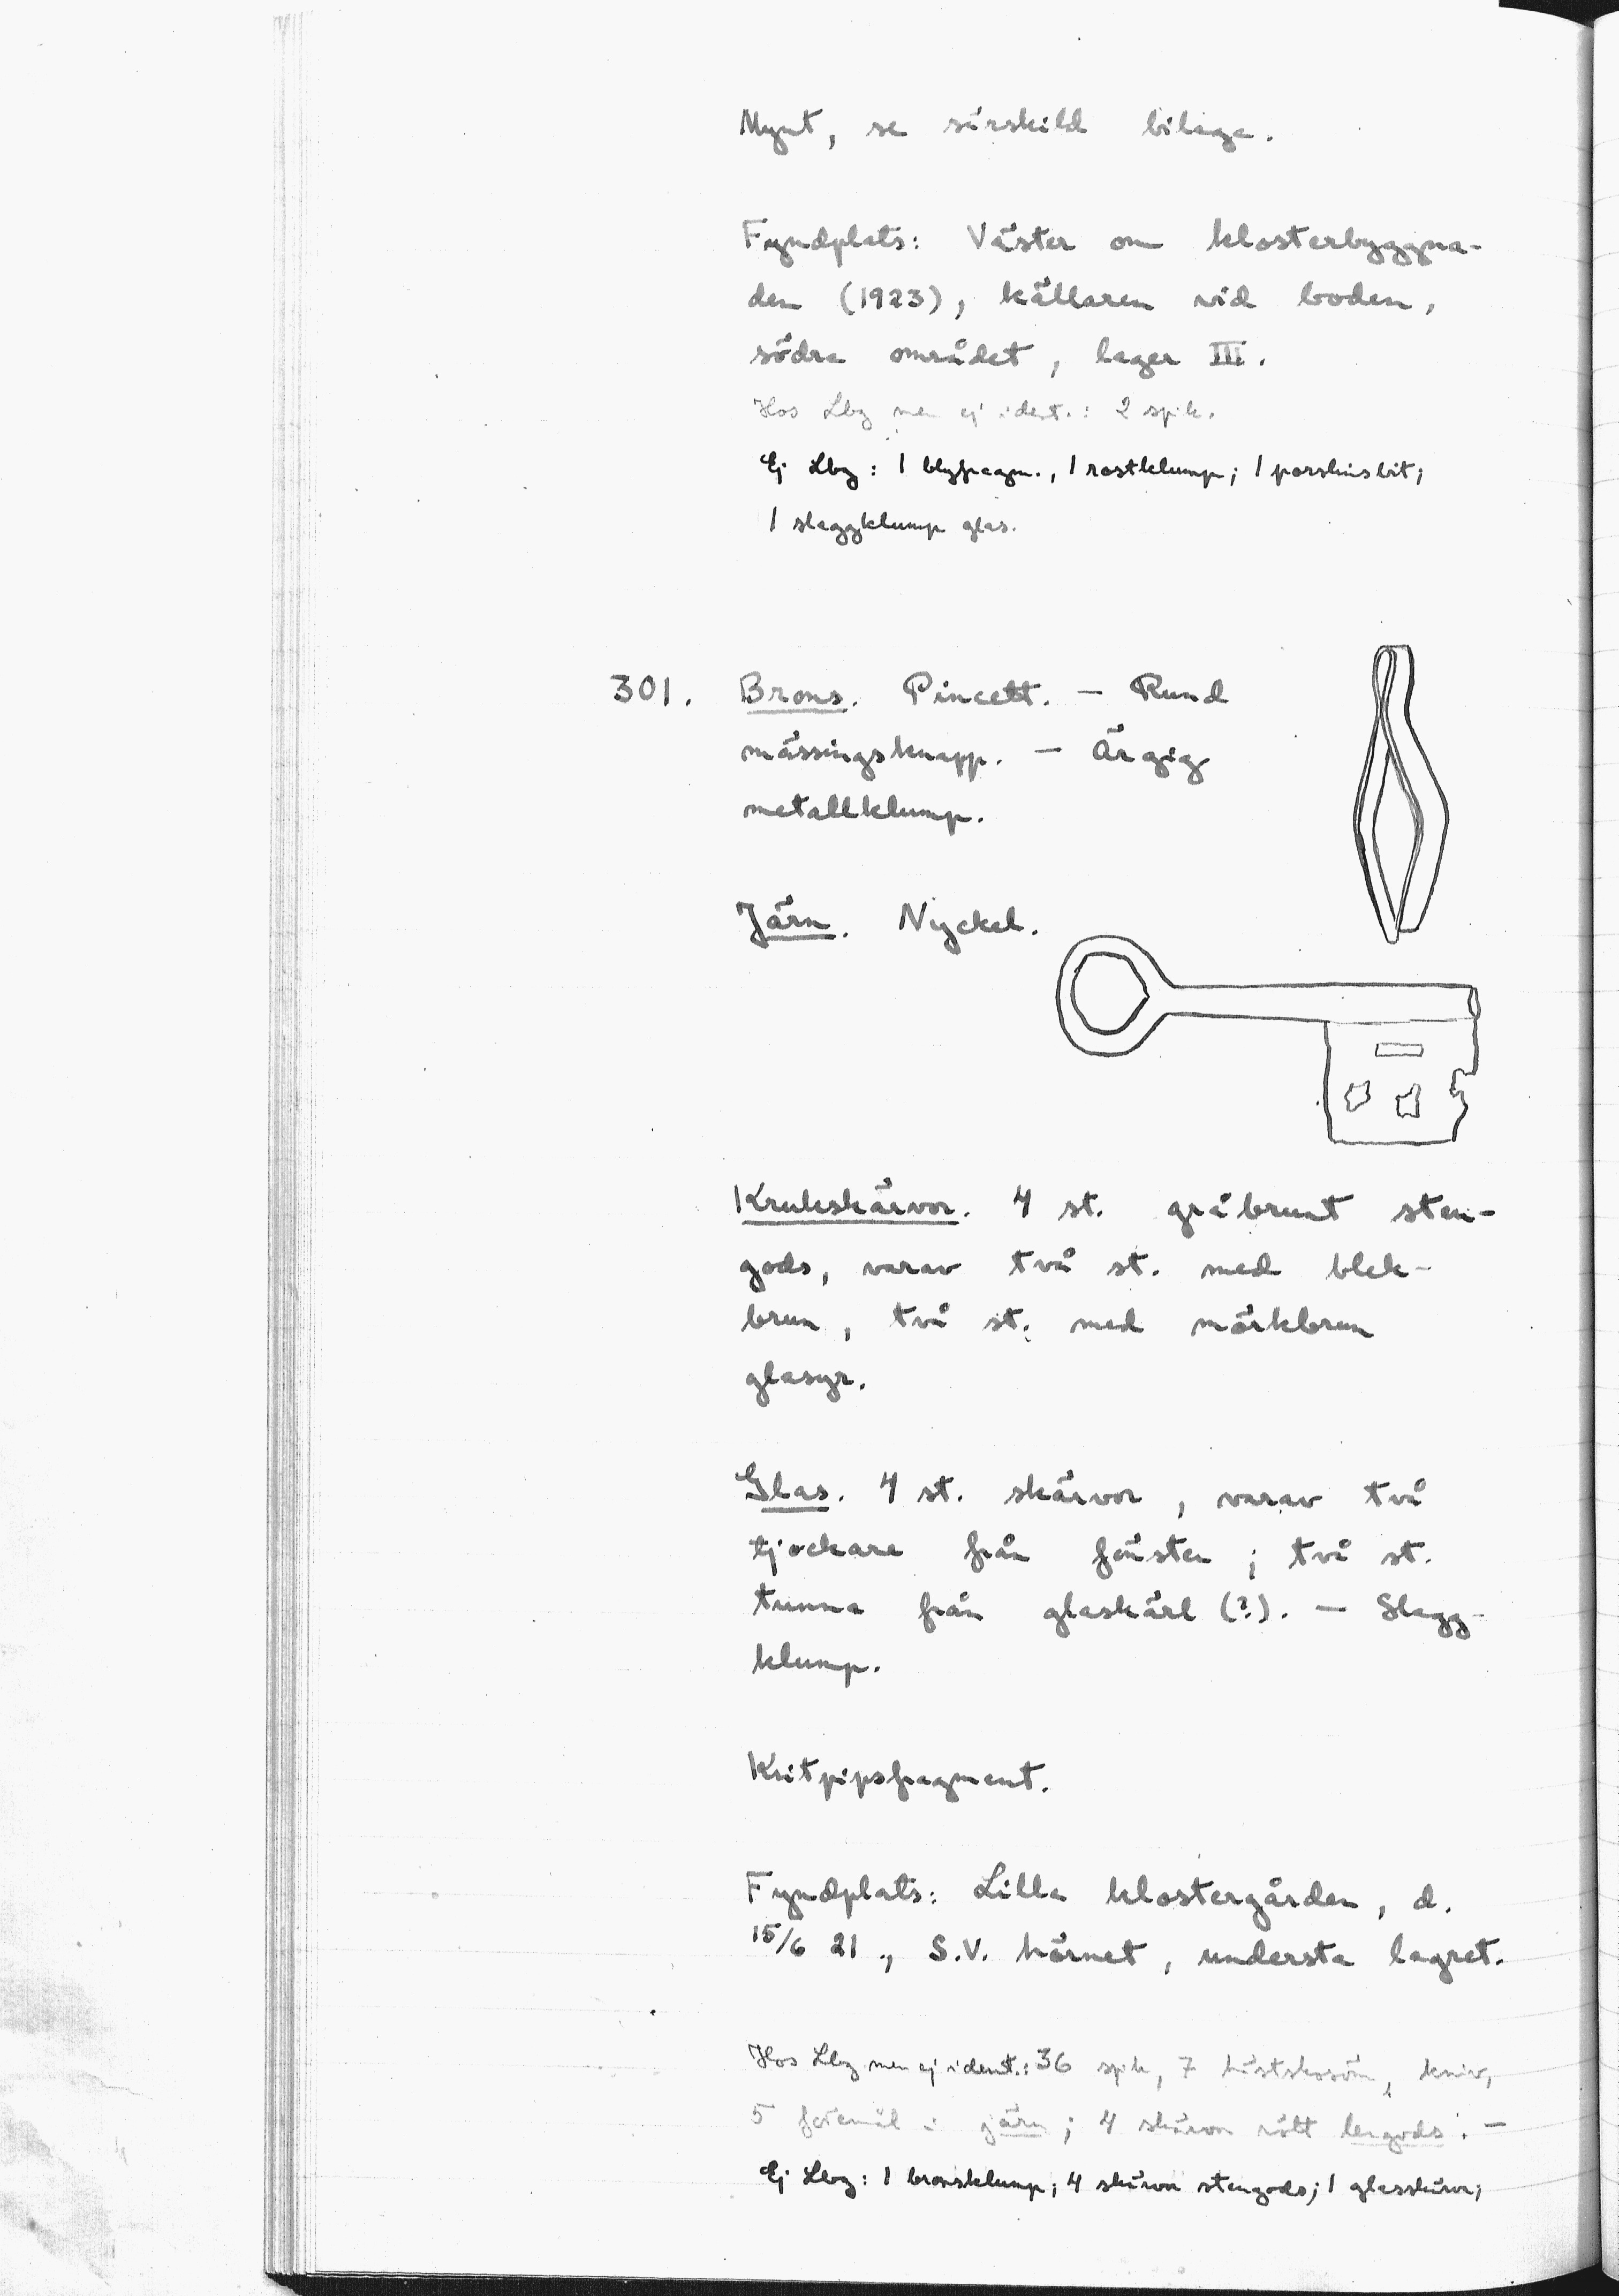 Mynt, se särskild bilaga.
Fyndplats: Väster om klosterbyggna-
den (1923), källaren vid boden,
södra området, lager III.
Hos Lbg men ej ident.: 2 spik.
Ej Lbg: 1 blyfragm., 1 rostklump; 1 porslinsbit;
1 slaggklump glas.
301. Brons. Pincett. — Rund
mässingsknapp. — Ärgig
metallklump.
Järn. Nyckel.
Krukskärvor. 4 st. gråbrunt sten-
gods, varav två st. med blek-
brun, två st. med mörkbrun
glasyr.
Glas. 4 st. skärvor, varav två
tjockare från fönster; två st.
tunna från glaskärl (?). — Slagg-
klump.
Kritpipsfragment.
Fyndplats: Lilla klostergården, d.
15/6 21., S.V. hörnet, understa lagret.
Hos Lbg men ej ident.: 36 spik, 7 hästskosöm, kniv,
5 föremål i järn; 4 skärvor rött lergods. —
Ej Lbg: 1 bronsklump; 4 skärvor stengods; 1 glasskärva;